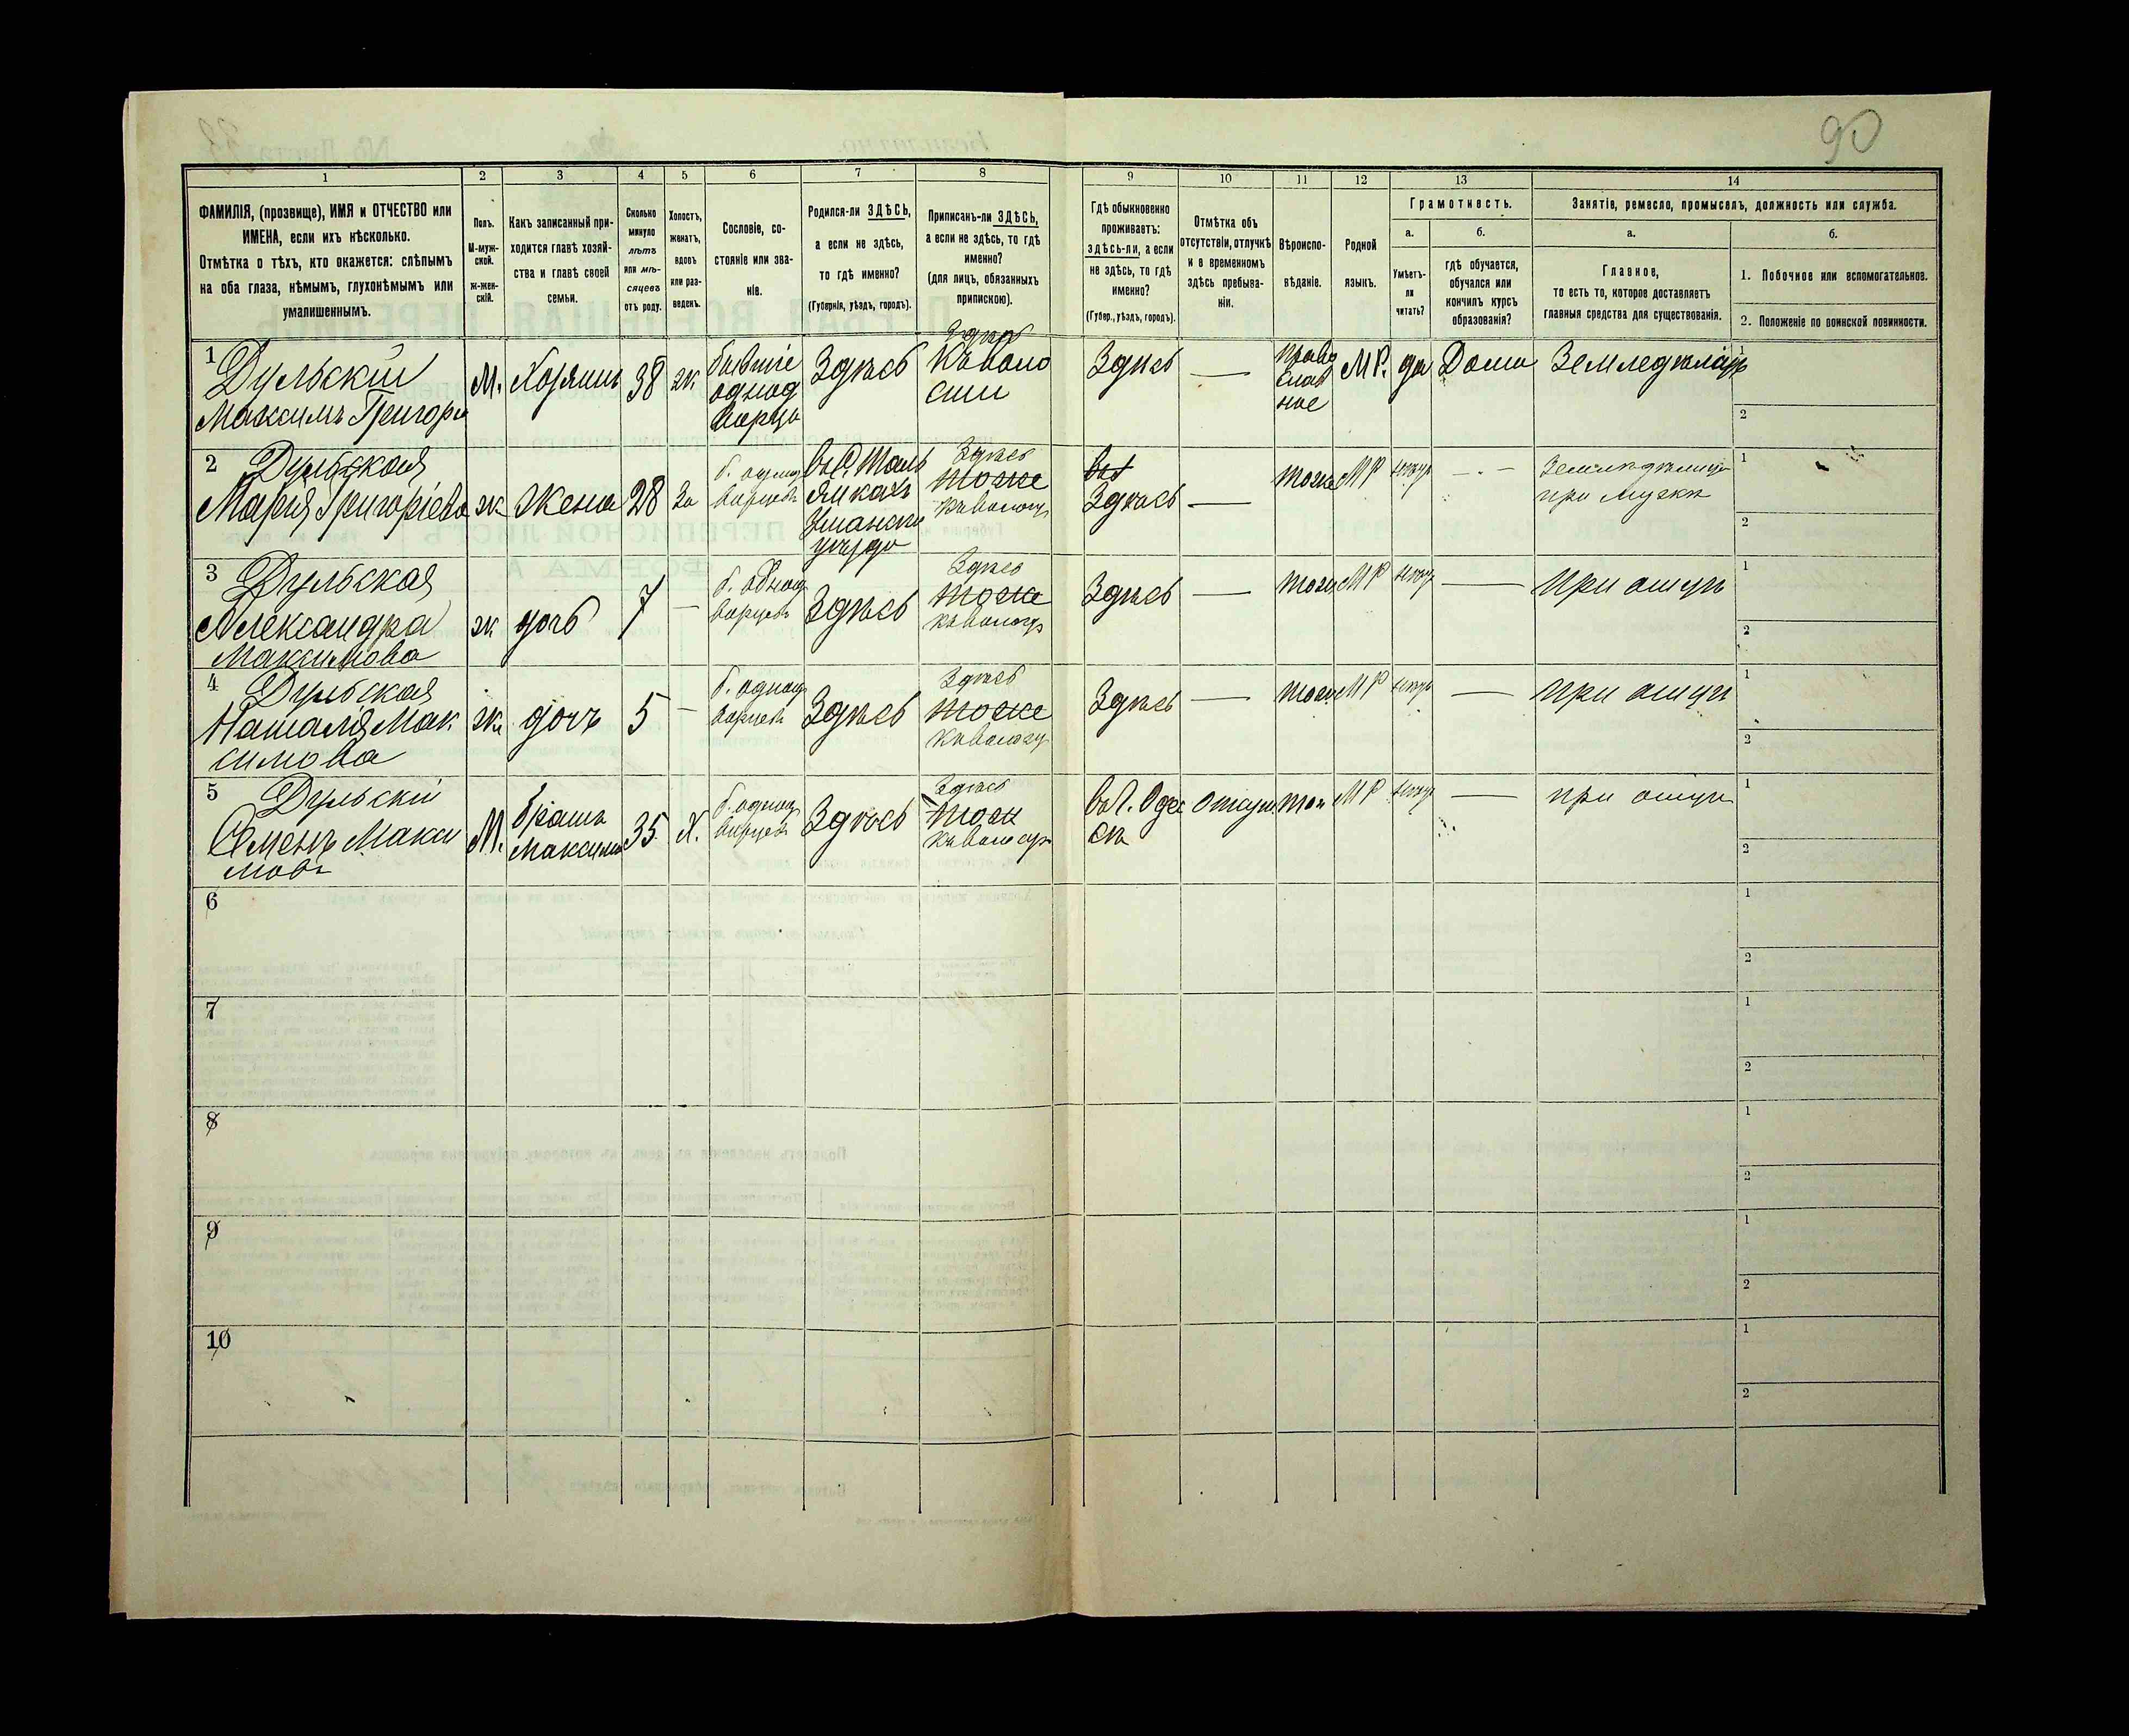 90
1
2
3
4
5
6
7
8
9
10
11
12
13
14
ФАМИЛІЯ, (прозвище), ИМЯ и ОТЧЕСТВО или
ИМЕНА, если ихъ нѣсколько.
Отмѣтка о тѣхъ, кто окажется: слѣпымъ
на оба глаза, нѣмымъ, глухонѣмымъ или
умалишеннымъ.
Полъ.
М-муж-
ской.
ж-жен-
скій.
Какъ записанный при-
ходится главѣ хозяй-
ства и главѣ своей
семьи.
Сколько
минуло
лѣтъ
или мѣ-
сяцевъ
отъ роду.
Холостъ,
женатъ,
вдовъ
или раз-
веденъ.
Сословіе, со-
стояніе или зва-
ніе.
Родился-ли ЗДѢСЬ,
а если не здѣсь,
то гдѣ именно?
(Губернія, уѣздъ, городъ).
Приписанъ-ли ЗДѢСЬ,
а если не здѣсь, то гдѣ
именно?
(для лицъ, обязанныхъ
припискою).
Гдѣ обыкновенно
проживаетъ:
здѣсь-ли, а если
не здѣсь, то гдѣ
именно?
(Губер., уѣздъ, городъ).
Отмѣтка объ
отсутствіи, отлучкѣ
и о временномъ
здѣсь пребыва-
ніи.
Вѣроиспо-
вѣданіе.
Родной
языкъ.
Грамотность.
а.
Умѣетъ-
ли
читать?
б.
гдѣ обучается,
обучался или
кончилъ курсъ
образованія?
Занятіе, ремесло, промыселъ, должность или служба.
а.
Главное,
то есть то, которое доставляетъ
главныя средства для существованія.
б.
1. Побочное или вспомогательное.
2. Положеніе по воинской повинности.
1
Дульскій
Максимъ Григорь
М.
Хозяинъ
38
ж
бывшіе
однод
ворцы
Здѣсь
Здѣсь
Къ воло
сти
Здѣсь
—
право
слав
ное
МР.
да
Дома
Земледѣлецъ
1
2
2
Дульская
Марія Григоріева
ж
Жена
28
За
б. однод
ворцевъ
въ С. Таль
янкахъ
Уманскаго
уѣзда
Здѣсь
тоже
къ волости
Здѣсь
—
тоже
МР
—
при мужѣ
1
2
3
Дульская
Александра
Максимова
ж
дочь
7
—
б. однод
ворцевъ
Здѣсь
Здѣсь
тоже
къ волости
Здѣсь
—
тоже
МР
—
при отцѣ
1
2
4
Дульская
Наталія Мак
симова
ж
дочъ
5
—
б. однод
ворцевъ
Здѣсь
Здѣсь
тоже
къ волости
Здѣсь
—
тоже
МР
—
при отцѣ
1
2
5
Дульскій
Семенъ Макси
мовъ
М.
братъ
Максима
35
Х.
б. однод
ворцевъ
Здѣсь
Здѣсь
тоже
къ волости
въ Г. Оде
съ
отсут.
тож
МР
—
при отцѣ
1
2
6
1
2
7
1
2
8
1
2
9
1
2
10
1
2